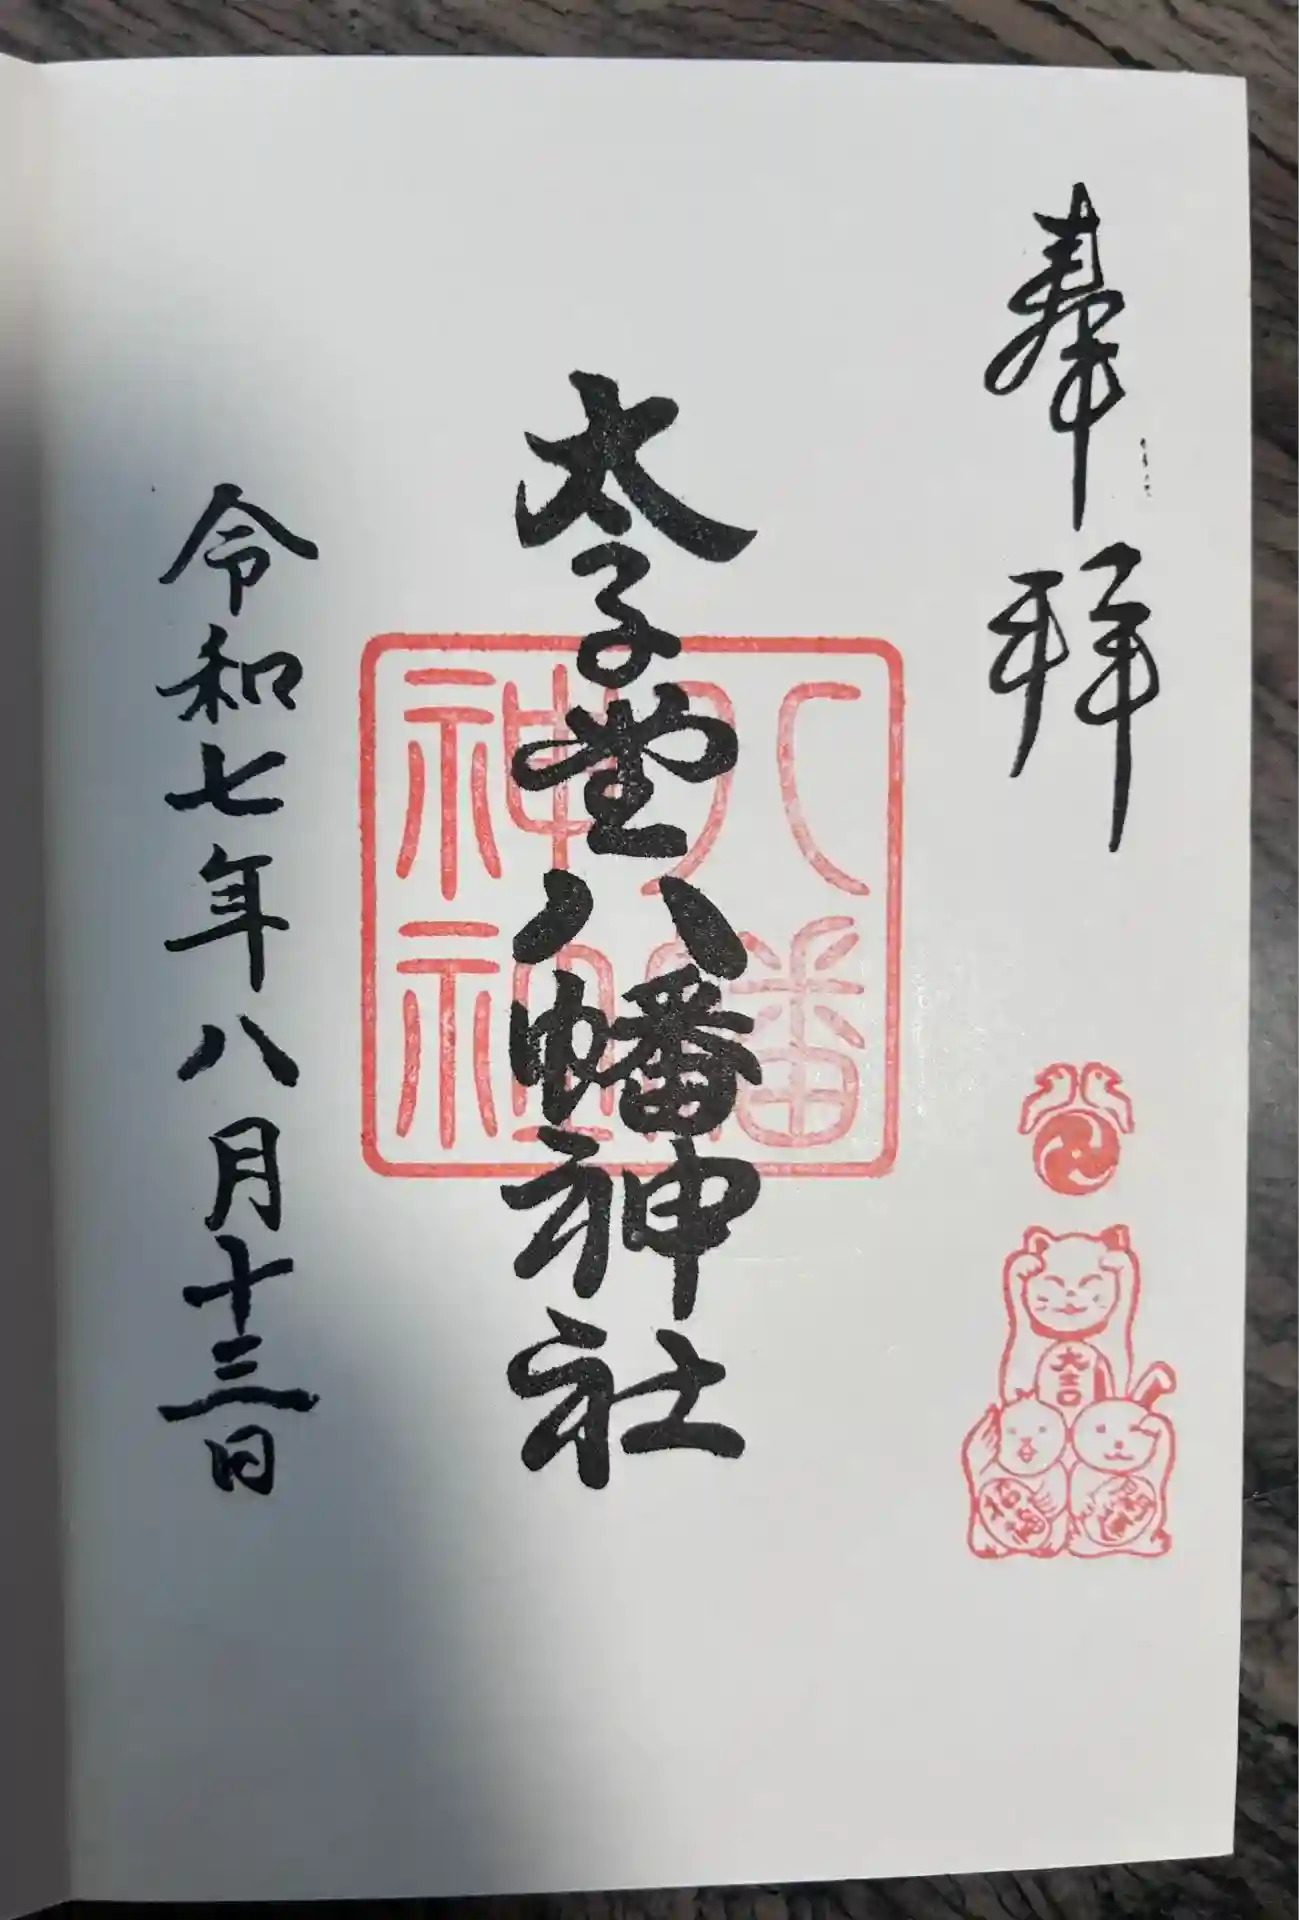 奉拝
大吉
招福
太子堂八幡神社
八幡
神社
令和七年八月十三日